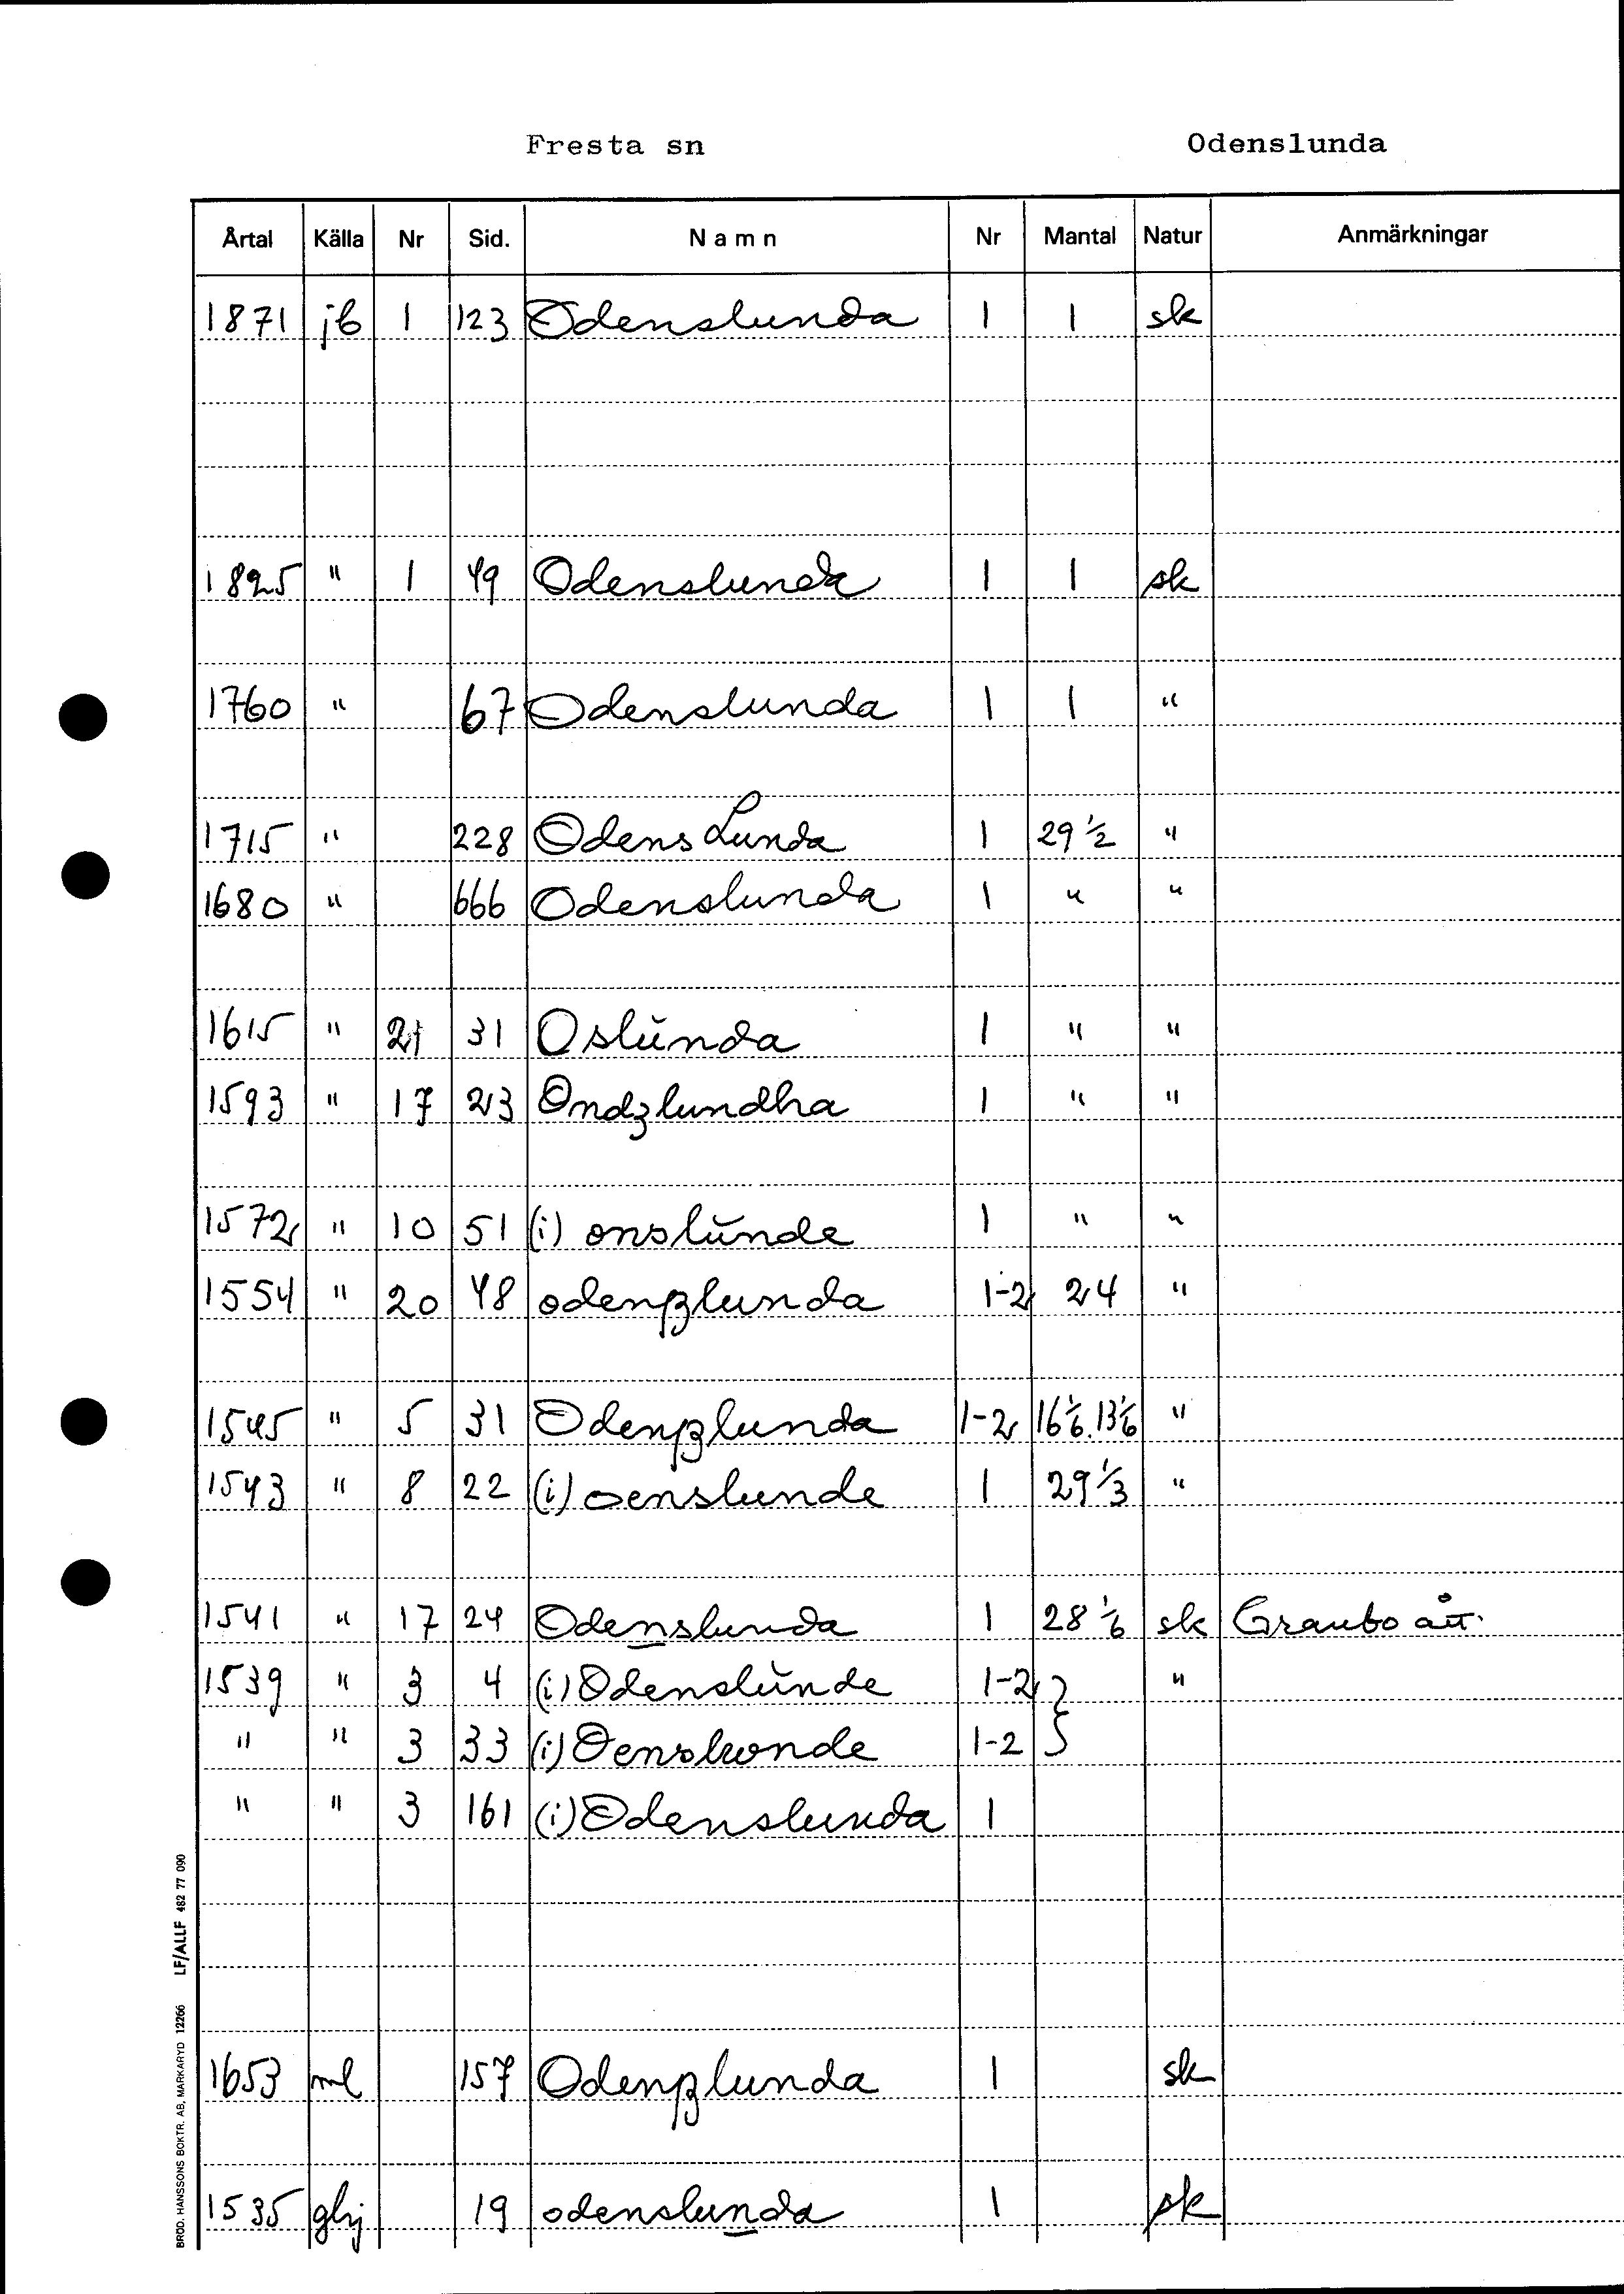 Fresta sn Odenslunda
Årtal Källa Nr Sid. Namn Nr Mantal Natur Anmärkningar
1871 jb 1 123 Odenslunda 1 1 sk
1825 " 1 49 Odenslunda 1 1 sk
1760 " 67 Odenslunda 1 1 "
1715 " 228 Odens Lunda 1 29 1/2 "
1680 " 666 Odenslunda 1 " "
1615 " 21 31 Oslŭnda 1 " "
1593 " 17 23 Ondzlundha 1 " "
1572 " 10 51 (i) onslŭnde 1 " "
1554 " 20 48 odenßlunda 1-2 24 "
1545 " 5 31 Odenßlunda 1-2 16 1/6. 13 1/6 "
1543 " 8 22 (i) oenslunde 1 29 1/3 "
1541 " 17 24 Odenslunda 1 28 1/6 sk Graubo ått.
1539 " 3 4 (i) Odenslŭnde 1-2 } "
" " 3 33 (i) Oenslwnde 1-2
" " 3 161 (i) Odenslunda 1
1653 ml 157 Odenßlunda 1 sk
1535 ghj 19 odenslunda 1 sk
BRÖD. HANSSONS BOKTR. AB, MARKARYD 12266 LF/ALLF 482 77 090